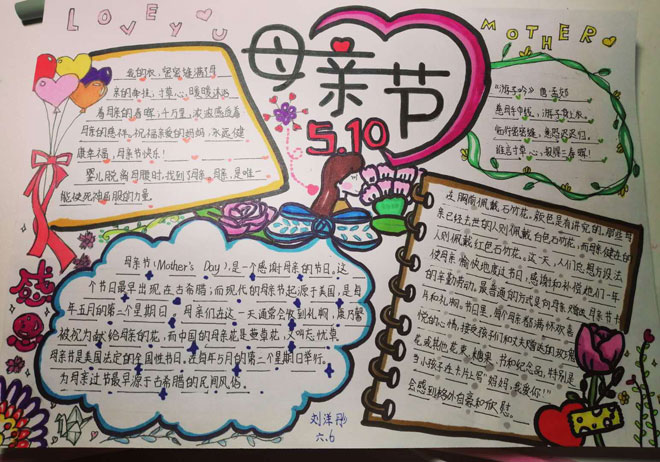 LOVE YOU
MOTHER
母亲节
5.10
我的衣，密密缝满了母
亲的牵挂，寸草心，暖暖沐浴
着母亲的春晖；千万里，浓浓感受着
母亲的慈祥。祝福亲爱的妈妈，永远健
康幸福，母亲节快乐！
婴儿脱离母腹时，找到了母亲，母亲，是唯一
能使死神屈服的力量
《游子吟》唐·孟郊
慈母手中线，游子身上衣。
临行密密缝，意恐迟迟归。
谁言寸草心，报得三春晖！
母亲节（Mother's Day），是一个感谢母亲的节日。这
个节日最早出现在古希腊；而现代的母亲节起源于美国，是每
年五月的第二个星期日，母亲们在这一天通常会收到礼物，康乃馨
被视为献给母亲的花，而中国的母亲花是萱草花，又叫忘忧草
母亲节是美国法定的全国性节日，在每年5月的第二个星期日举行。
为母亲过节最早源于古希腊的民间风俗。
在胸前佩戴石竹花。颜色是有讲究的。那些母
亲已经去世的人则佩戴白色石竹花。而母亲健在的
人则佩戴红色石竹花。这一天，人们总想方设法
使母亲愉快地度过节日，感谢和补偿她们一年
的辛勤劳动。最普通的方式是向母亲赠送母亲节卡
片和礼物。节日里，每个母亲都满怀欢喜
悦的心情，接受孩子们和丈夫赠送的玫瑰
花或其他花束，糖果，书和纪念品，特别是
当小孩子在卡片上写“妈妈，我爱你！”
会感到格外自豪和欣慰。
感
恩
刘洋彤
六.6